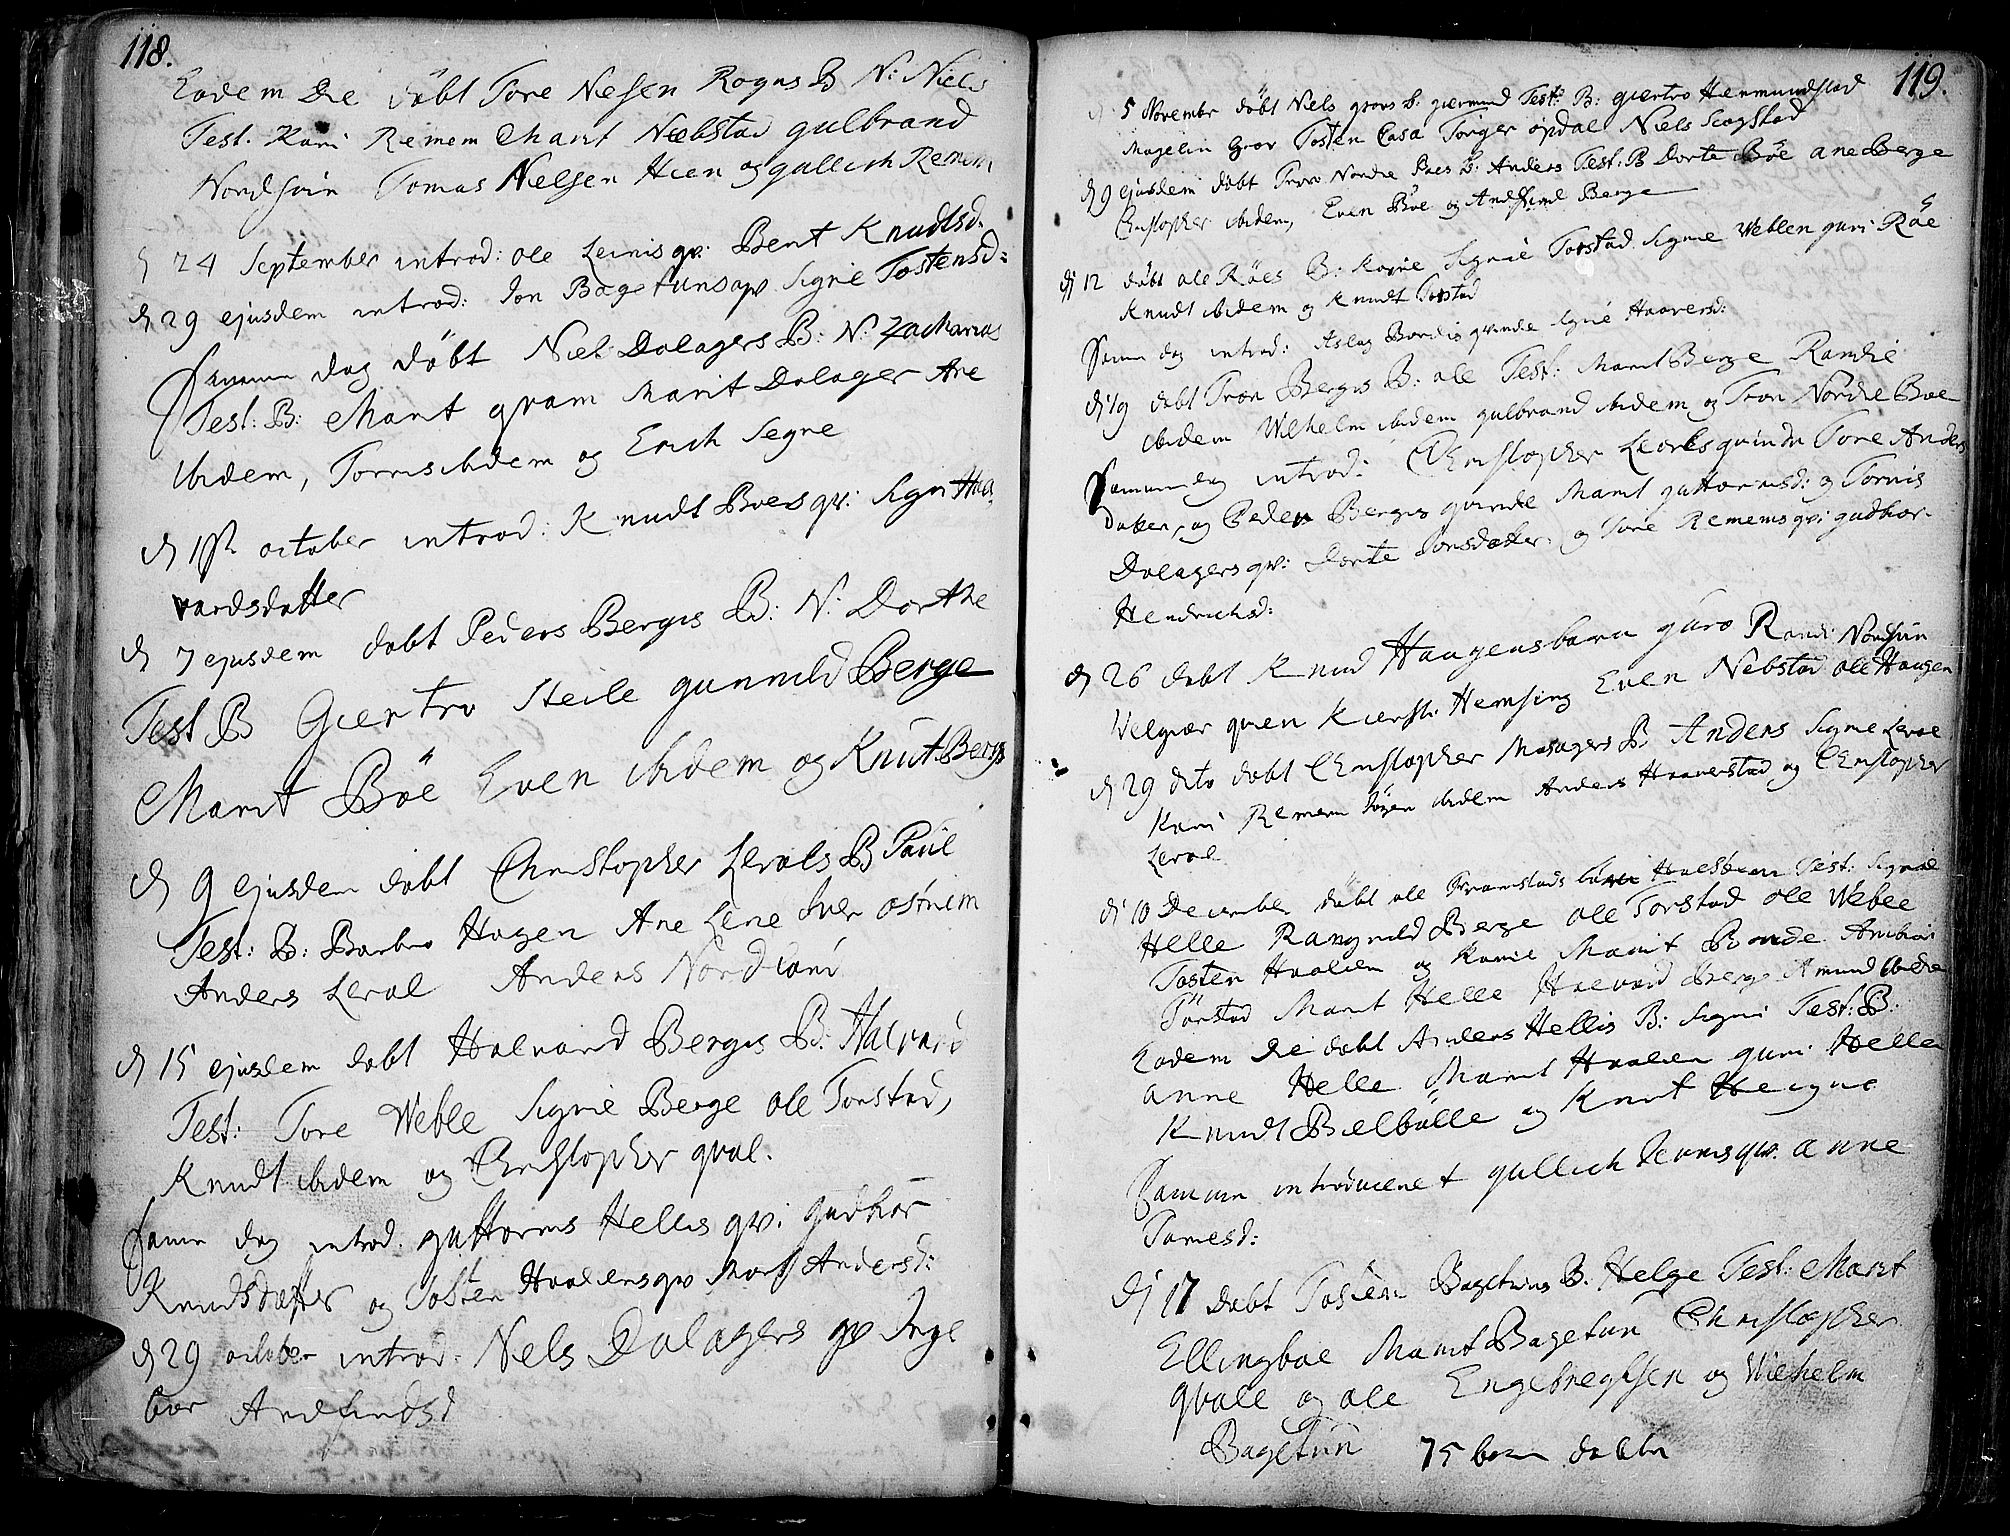 118.
Eodem Die döbt Tore Nelsen Rogns B N: Niels
Test. Kari Remem Marit Næbstad gulbrand
Nordsvin Tomas Nielsen Hien og gullich Remem
d 24 September introd: ole Leinis qv: Berit Knudtsd.
d 29 ejusdem introd: Jon Bagetuns qv Signe Tostensd:
Samme dag döbt Niel Dalagers B: N: Zacharias
Test: B: Marit qvam Marit Dalager Are
ibidem, Tormis ibidem og Erich Segne
d 1st october introd: Knudt Boes qv: Sigri Haa
vardsdatter
d 7 ejusdem dobt Peders Bergis B: N: Dorthe
Test B Giertro Heile gunnild Berge
Marit Böe Even ibidem og Knut Berge
d 9 ejusdem dobt Christopher Lerols B Paul
Test: B: Barbro Hagen Ane Lene Iver ostriem
Anders Lerol Anders
d 15 ejusdem dobt Halvard Bergis B: Halvard
Test: Tore Weble Signe Berge ole Torstad,
Knudt ibidem og Christopher qval.
Samme dag introd. guttorms Hellis qv: gudbor
Knudsdatter og Tosten Haaliens qv Marit Andersd:
d 29 october introd. Niels Dalagers qv Inge
bor Arnfindsd
119.
d 5 Novembr döbt Niels grovs B: giermund Test: B: giertro Hermundstad
Magelin grov Tosten Casa Torger opdal Niels Scogstad
d 9 ejusdem döbt Tron Nordre Boes B: Anders Test: B Dorte Böe ane Berge
Christopher ibidem, Even Böe og Berge
d 12 döbt ole Röes B: Karie Signie Torstad Signe Weblen guri Röe
Knudt ibidem og Knudt Torstad
Samme dag introd: Aslag qvinde Signe Haaversd:
d 19 dobt Tron Bergis B: ole Test: Marit Berge Randie
ibidem Wilhelm ibidem gulbrand ibidem og Tron Nordre Boe
Samme dag introd: Christopher Lerols qvinde Tore Anders
datter, og Peder Bergis qvinde Marit guttormsd: og Tormis
Dalagers qv: Dorte Jonsdatter. og Tore Remems qv: gudbor
Hendrichsd:
d 26 dobt Knud Haugens barn guro Randi Nordsvin
Velgier qvien Kiersti Hemsing Even Nebstad ole Haugen
d 29 dito dobt Christopher Mosagers B: Anders Signe Lerol
Kari Remem ibidem Anders Haaverstad og Christopher
Lerol
d 10 December döbt ole Test: Signe
Helle Rangnild Berge ole Torstad ole Weble
Tosten Haalien og Karie Marit Bonde
Torstad Marit Helle Halvard Berge Amund ibidem
Eodem die dobt Anders Hellis B: Sigri Test: B:
anne Helle Marit Haalien guri Helle
Knudt Bielbölle og Knut Heigne
Samme introduceret gullich Remems qv: anne
Tomesd:
d 17 dobt Tosten Bagetuns B: Helge Test: Marit
Ellingboe Marit Bagetun Christopher
qvale og ole Engebregtsen og Wilhelm
Bagetun 75 børn døbte